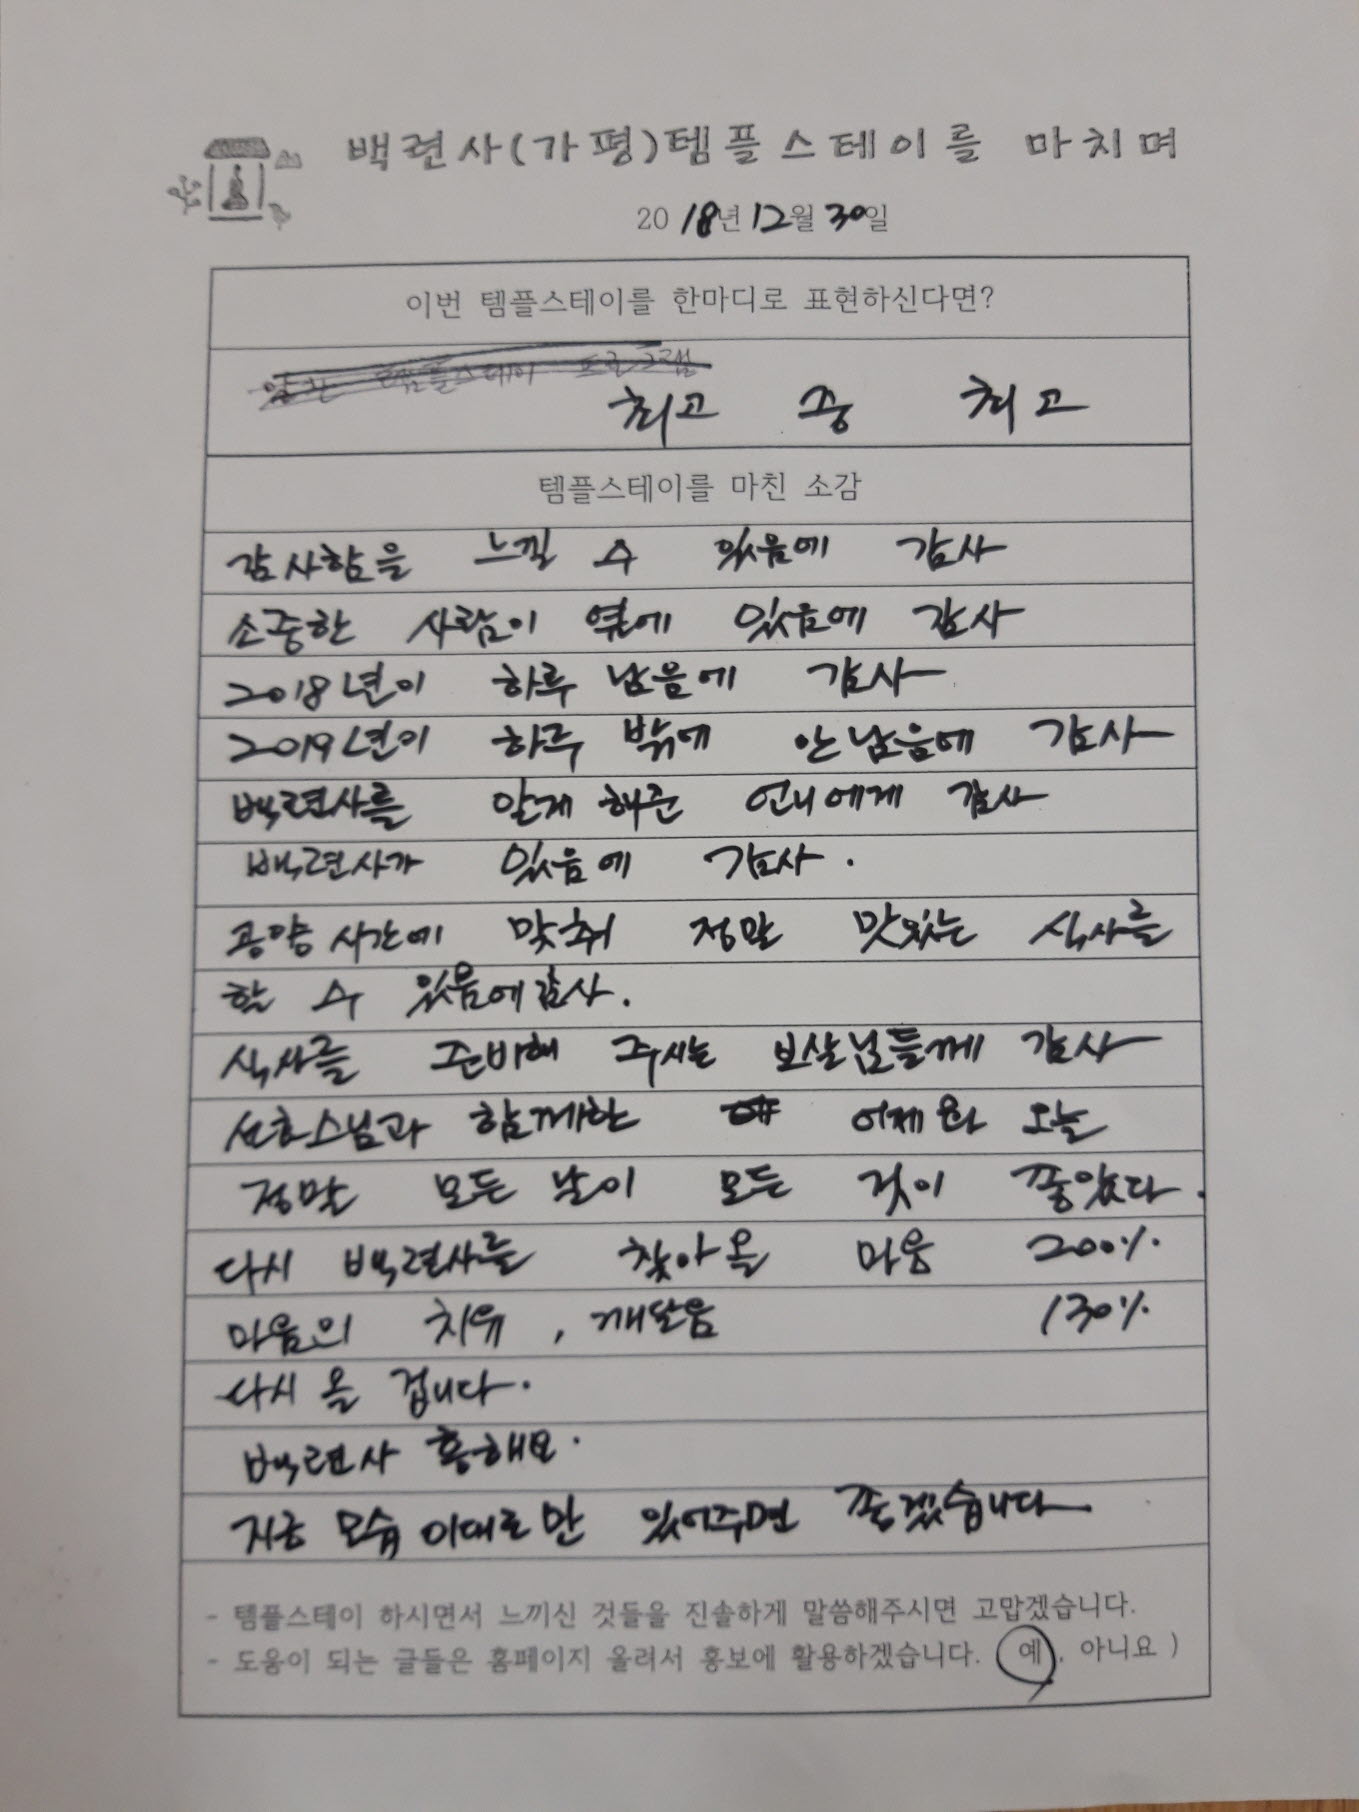 백련사(가평)템플스테이를 마치며
2018년 12월 30일
이번 템플스테이를 한마디로 표현하신다면?
템플스테이 프로그램
최고 중 최고
템플스테이를 마친 소감
감사함을 느낄 수 있음에 감사
소중한 사람이 옆에 있음에 감사
2018년이 하루 남음에 감사
2019년이 하루 밖에 안남음에 감사
백련사를 알게 해준 언니에게 감사
백련사가 있음에 감사.
공양 시간에 맞춰 정말 맛있는 식사를
할 수 있음에 감사.
식사를 준비해 주시는 보살님들께 감사
선효스님과 함께한 어제와 오늘
정말 모든 날이 모든 것이 좋았다.
다시 백련사를 찾아올 마음 200%
마음의 치유, 깨달음 130%
다시 올 겁니다.
백련사 흥해요.
지금 모습 이대로만 있어주면 좋겠습니다
- 템플스테이 하시면서 느끼신 것들을 진솔하게 말씀해주시면 고맙겠습니다.
- 도움이 되는 글들은 홈페이지 올려서 홍보에 활용하겠습니다. (예, 아니요)